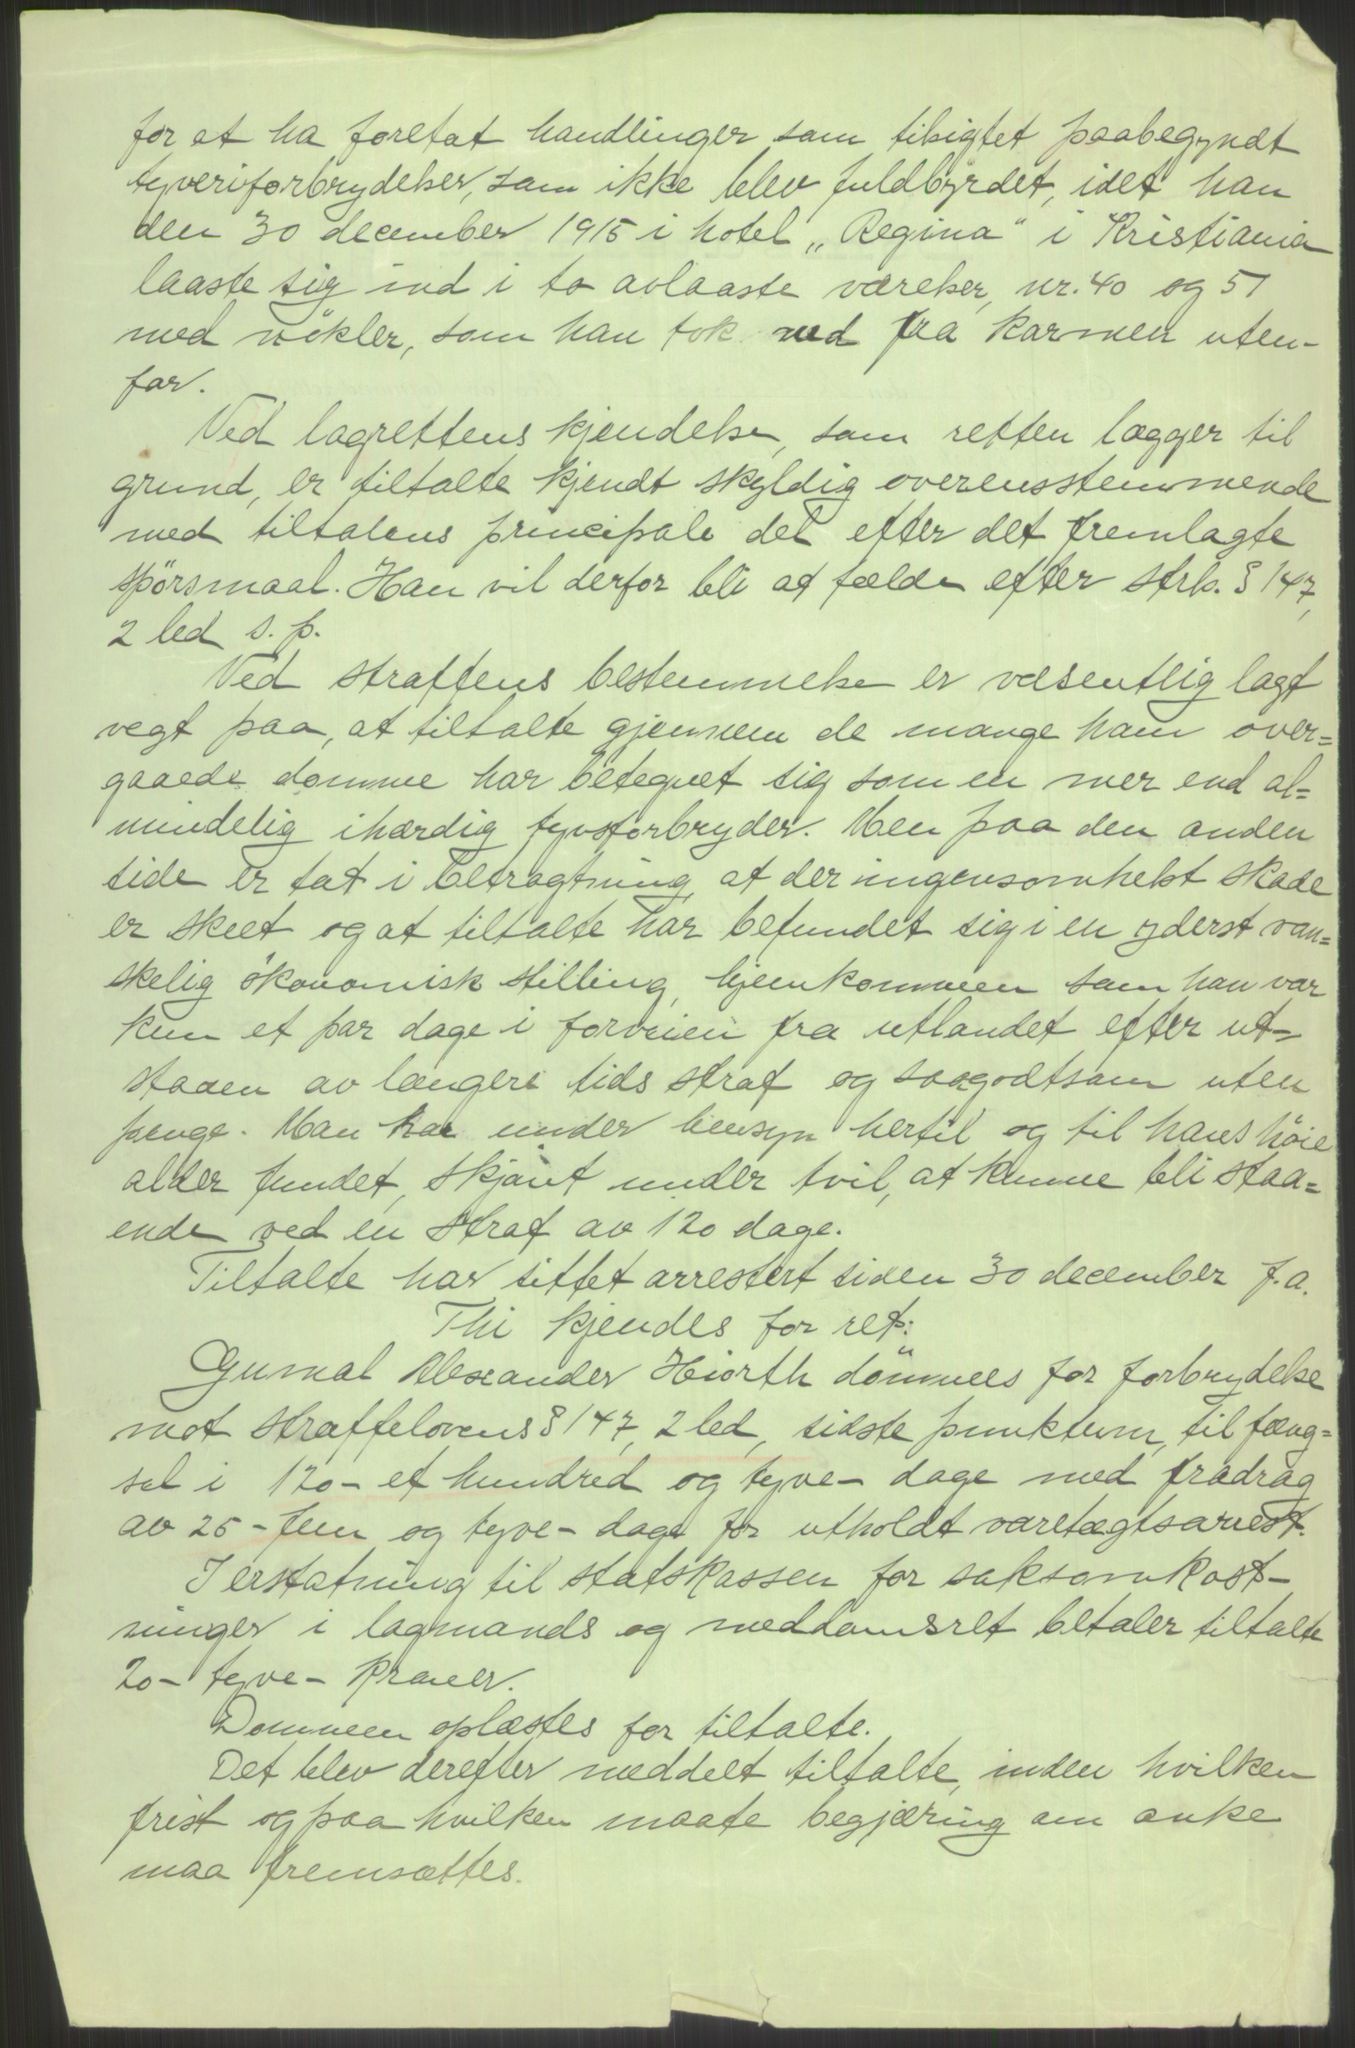 for at ha foretat handlinger som tilsigtet paabegyndt
tyveriforbrydelser, som ikke blev fuldbyrdet, idet han
den 30 december 1915 i hotel „Regina" i Kristiania
laaste sig ind i to avlaaste værelser, nr. 40 og 51
med nökler, som han tok ned fra karmen uten-
for.
Ved lagrettens kjendelse, som retten lægger til
grund, er tiltalte kjendt skyldig overensstemmende
med tiltalens principale del efter det fremlagte
spörsmaal. Han vil derfor bli at fælde efter strl. § 147,
2 led s. p.
Ved straffens bestemmelse er væsentlig lagt
vegt paa, at tiltalte gjennem de mange ham over=
gaaede domme har betegnet sig som en mer end al=
mindelig ihærdig tyvsforbryder. Men paa den anden
side er tat i betragtning, at der ingensomhelst skade
er skeet og at tiltalte har befundet sig i en yderst van=
skelig ökonomisk stilling, hjemkommen som han var
kun et par dage i forveien fra utlandet efter ut=
staaen av længere tids straf og saagodtsom uten
penge. Man har under hensyn hertil og til hans höie
alder fundet, skjönt under tvil, at kunne bli staa=
ende ved en straf av 120 dage.
Tiltalte har sittet arrestert siden 30 december f.a.
Thi kjendes for ret:
Alexander Hiorth dömmes for forbrydelse
mot straffelovens § 147, 2 led, sidste punktum, til fæng=
sel i 120 - et hundred og tyve - dage med fradrag
av 25 - fem og tyve - dage for utholdt varetægtsarrest.
I erstatning til statskassen for saksomkost-
ninger i lagmands og meddomsret betaler tiltalte
20 - tyve - kroner.
Dommen oplæstes for tiltalte.
Det blev derefter meddelt tiltalte, inden hvilken
frist og paa hvilken maate begjæring om anke
maa fremsættes.